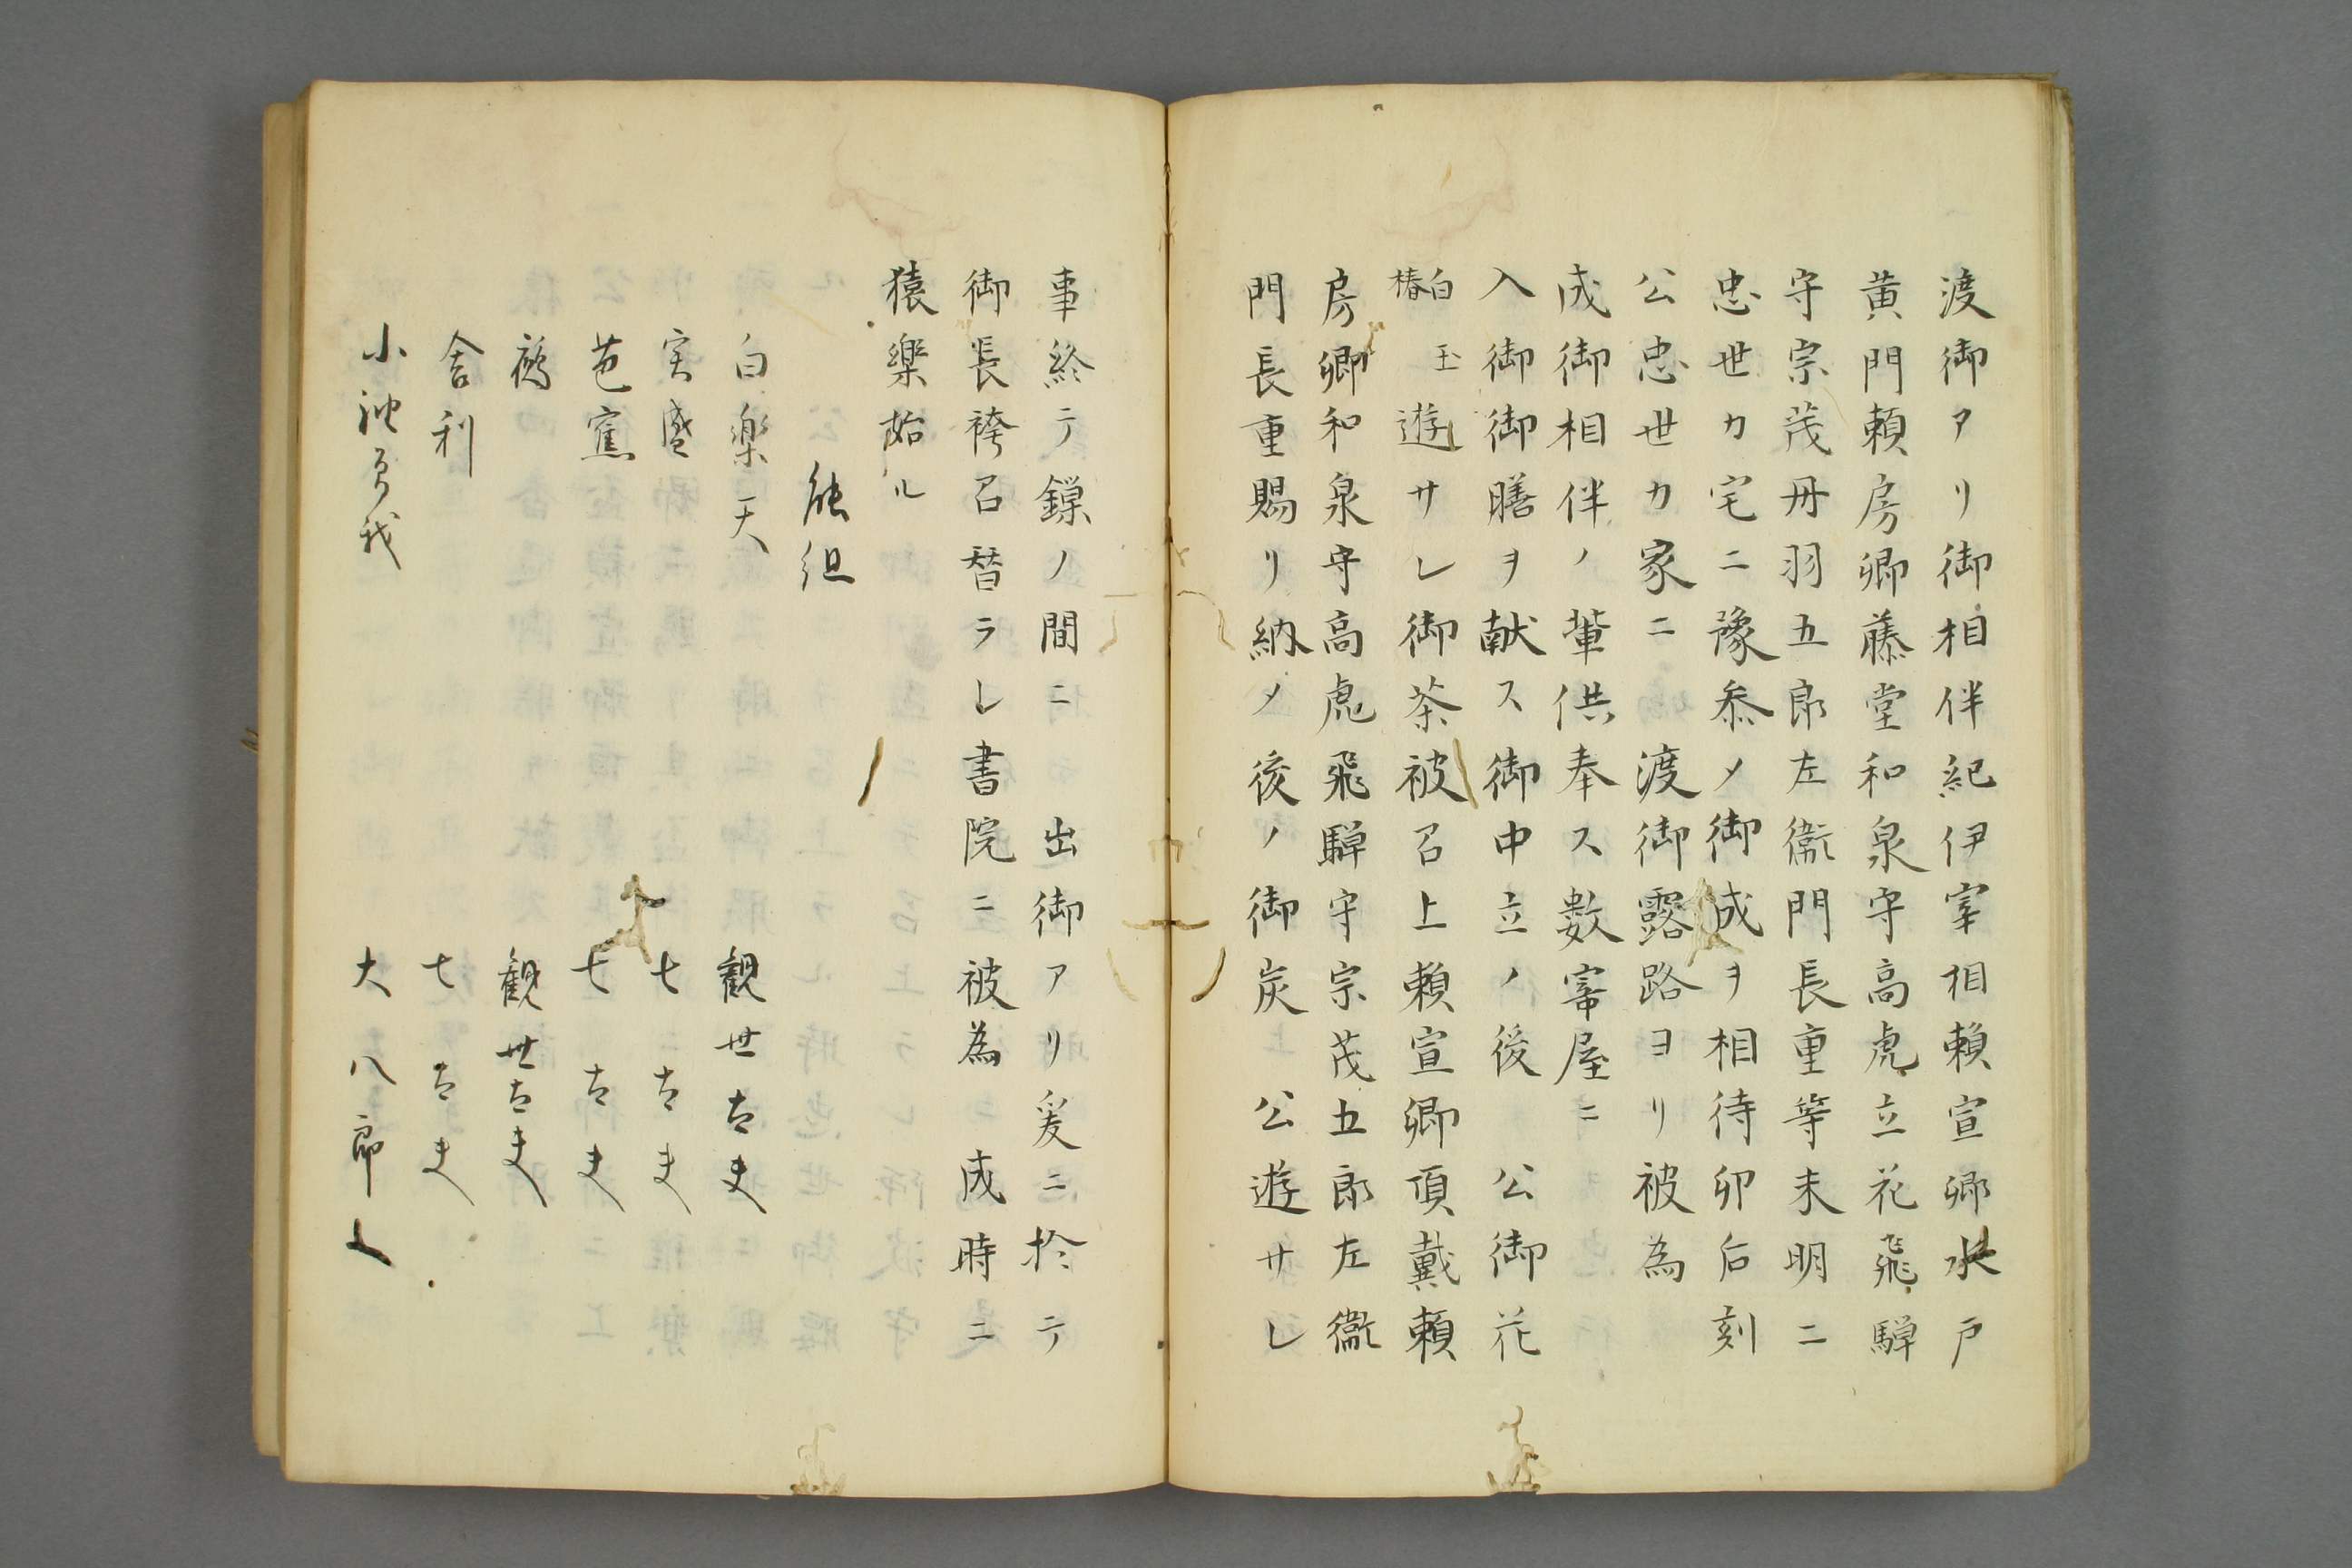 渡御アリ御相伴紀伊宰相頼宣卿水戸
黄門頼房卿藤堂和泉守高虎立花飛騨
守宗茂丹羽五郎左衞門長重等未明ニ
忠世カ宅ニ豫参メ御成ヲ相待卯后刻
公忠世カ家ニ渡御露路ヨリ被為
成御相伴ノ輩供奉ス數寄屋ニ
入御御膳ヲ献ス御中立ノ後　公御花
白玉
椿
遊サレ御茶被召上頼宣卿頂戴頼
房卿和泉守高虎飛騨守宗茂五郎左衞
門長重賜リ納メ後ノ御炭　公遊サレ
事終テ鏁ノ間ニ　出御アリ爰ニ於テ
御長袴召替ラレ書院ニ被為　成時ニ
猿樂始ル
能組
白樂天　観世太夫
実盛　七太夫
芭蕉　七太夫
鵺　観世太夫
舎利　七太夫
小袖曽我　大八郎